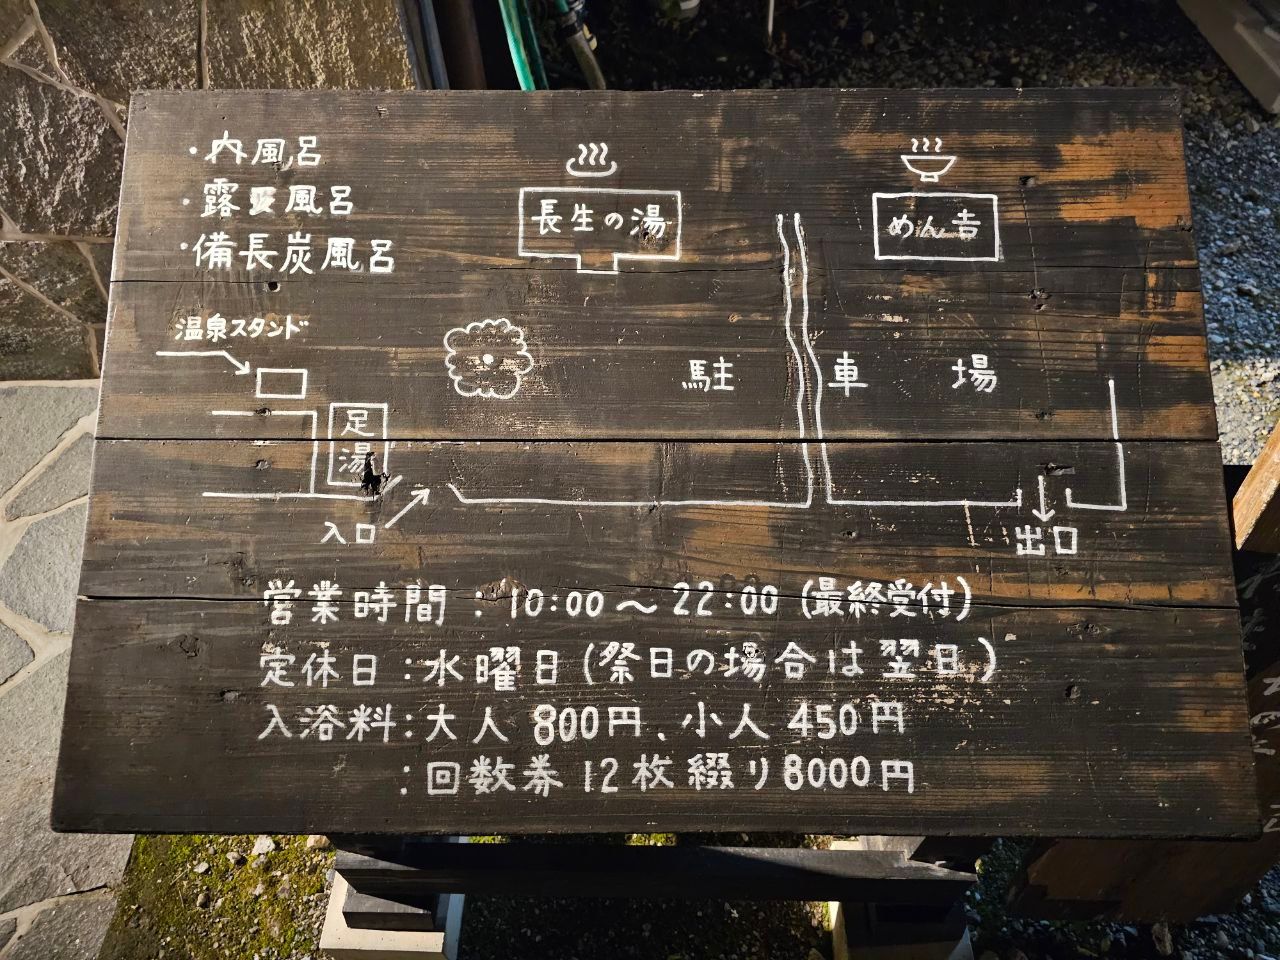 ・内風呂
・露天風呂
・備長炭風呂
長生の湯
めん吉
温泉スタンド
駐車場
足湯
入口
出口
営業時間：10:00～22:00（最終受付）
定休日：水曜日（祭日の場合は翌日）
入浴料：大人800円、小人450円
：回数券12枚綴り8000円